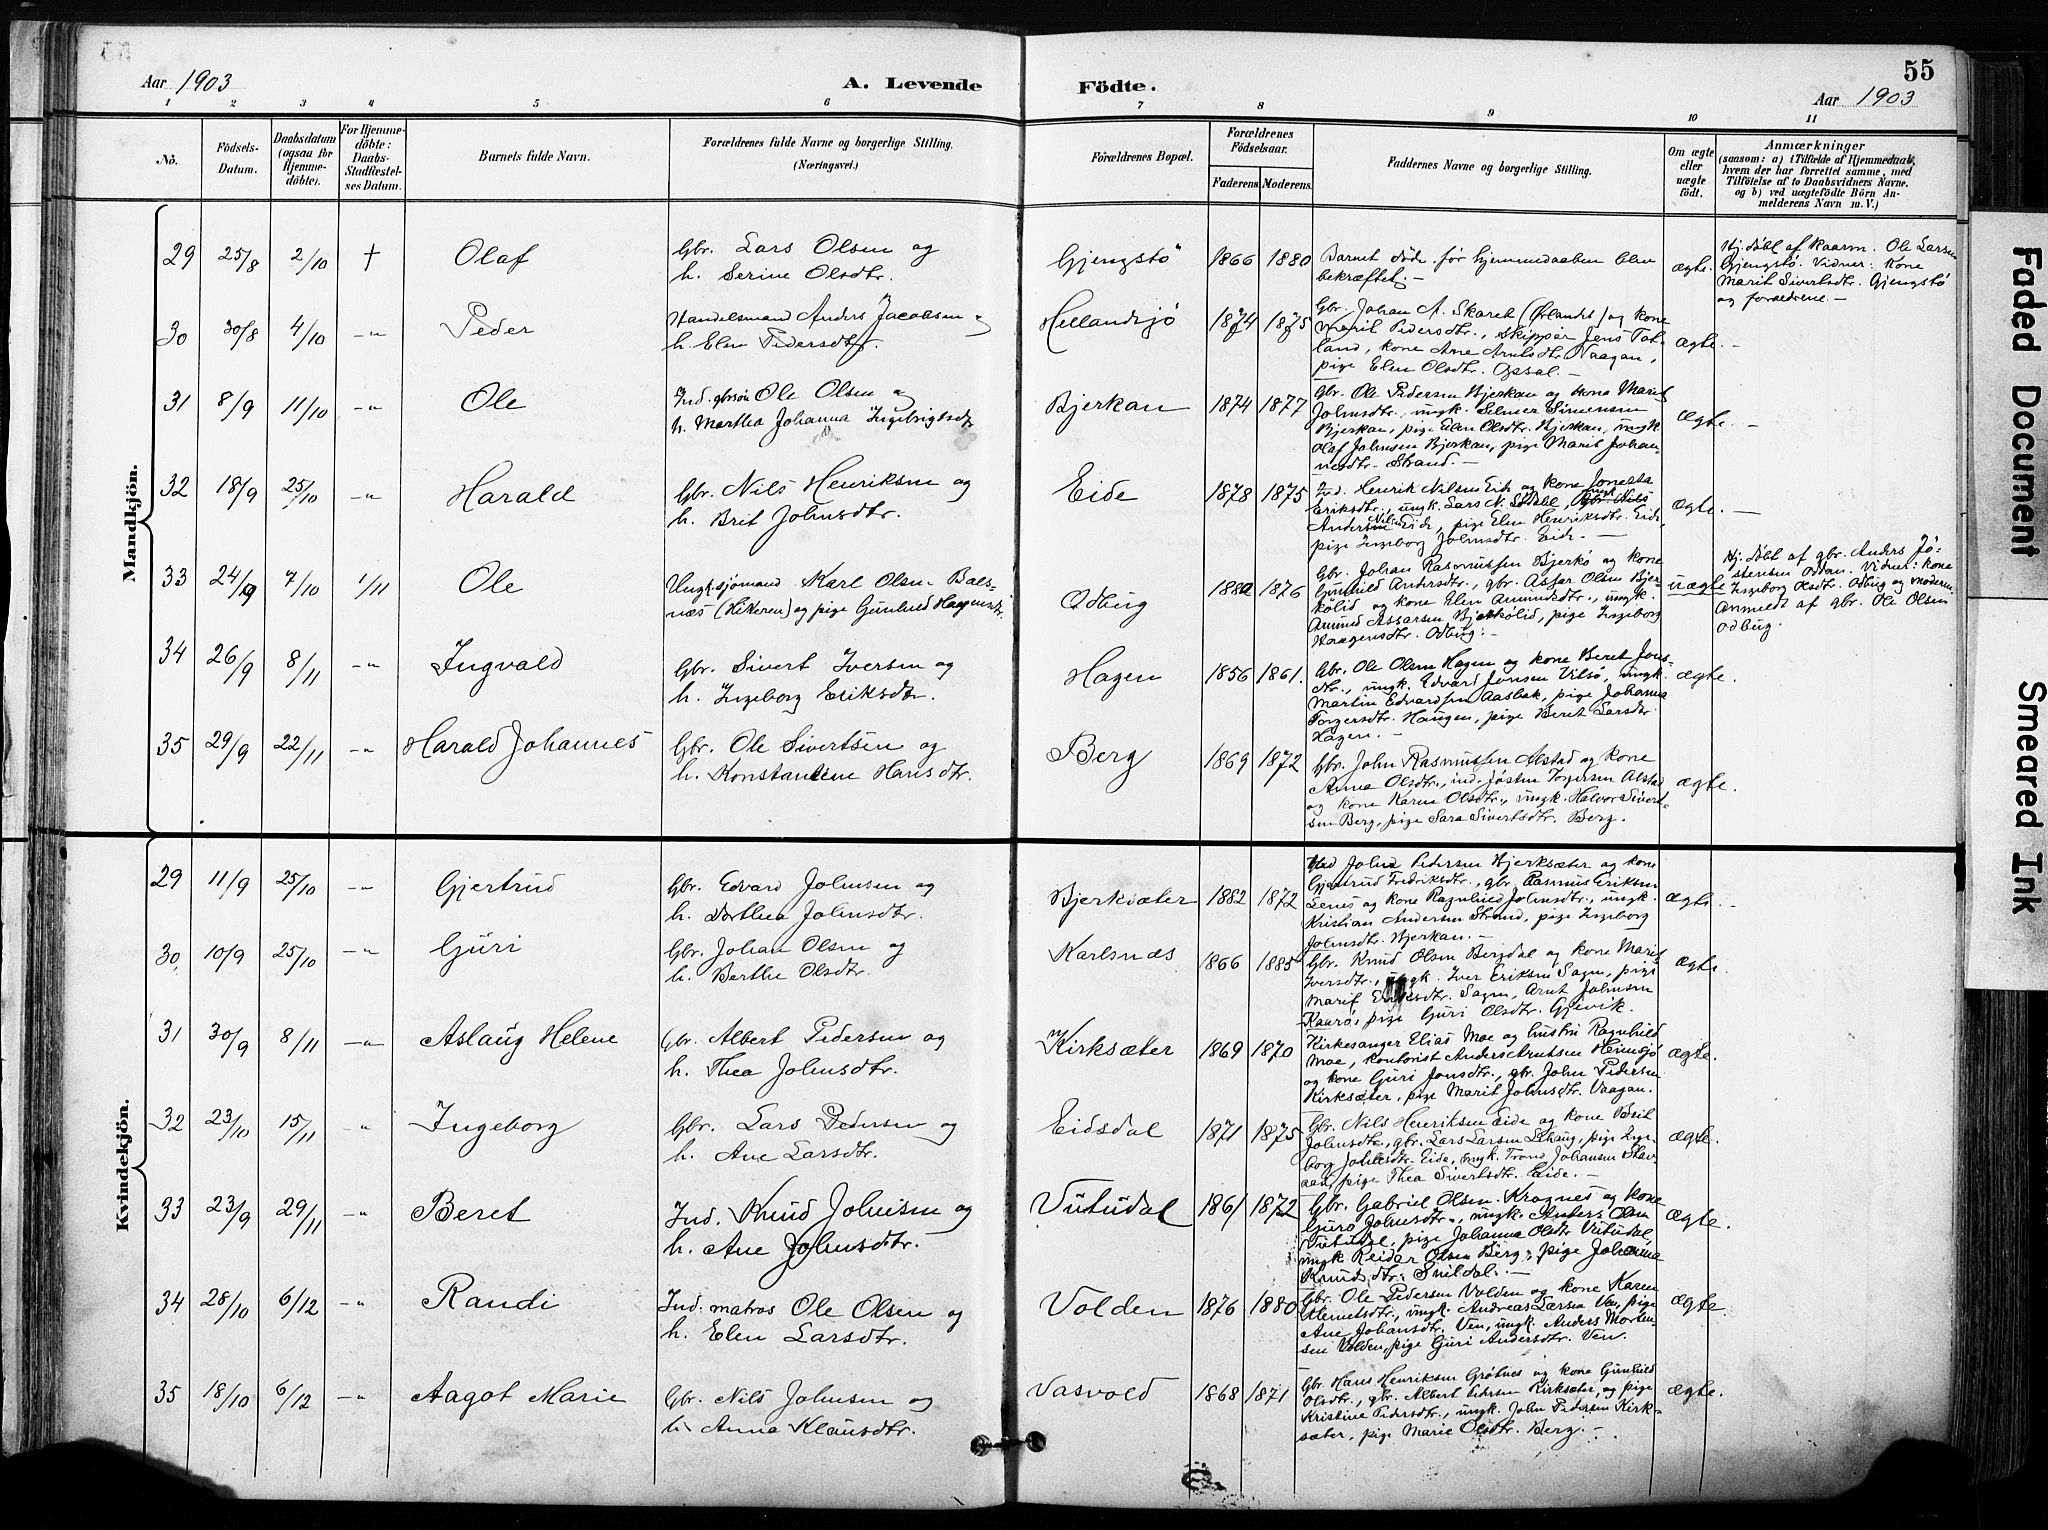 55
Aar 1903
A. Levende
Födte.
Aar 1903
1 2 3 4 5 6 7 8 9 10 11
No.
Födsels-
Datum.
Daabsdatum
(ogsaa for
Hjemme-
döbte).
For Hjemme-
döbte:
Daabs-
Stadfæstel-
ses Datum.
Barnets fulde Navn.
Forældrenes fulde Navne og borgerlige Stilling.
(Næringsvei.)
Forældrenes Bopæl.
Forældrenes
Födselsaar.
Faderens.
Moderens.
Faddernes Navne og borgerlige Stilling.
Om ægte
eller
uægte
født.
Anmærkninger
(saasom: a) i Tilfælde af Hjemmedaab,
hvem der har forrettet samme, med
Tilföielse af to Daabsvidners Navne.
og b) ved uægtefödte Börn An-
melderens Navn m. V.)
Mandkjön.
29 25/8 2/10 † Olaf
Gbr. Lars Olsen og
h. Serine Olsdtr.
Gjengstö 1866 1880
Barnet döde før hjemmedaaben blev
bekræftet. -
ægte.
Hj. döbt af Ole Larsen
Gjengstö. Vidner: Kone
Marit Sivertsdtr. Gjengstö
og forældrene. -
30 30/8 4/10 -"- Peder
Handelsmand Anders Jacobsen og
h. Elen Pedersdtr.
Hellandsjö 1874 1875
Gbr. Johan A. Skaret (Ørlandet) og kone
Marit Pedersdtr., Skipper Jens
kone Ane Vaagan,
pige Elen Olsdtr. Opsal. -
ægte. -
31 8/9 11/10 -"- Ole
Ind. gbrsön Ole Olsen og
h. Martha Johanna Ingebrigtsdtr
Bjerkan 1874 1877
Gbr. Ole Pedersen Bjerkan og kone Marit
Johnsdtr., ungk. Selmer Simensen
Bjerkan, pige Elen Olsdtr. Bjerkan, ungk.
Olaf Johnsen Bjerkan, pige Marit Johan-
nesdtr. Strand. -
ægte. -
32 18/9 25/10 -"- Harald
Gbr. Nils Henriksen og
h. Brit Johnsdtr.
Eide 1878 1875
Ind. Henrik Nilsen Eide og kone
Eriksdtr., ungk. Lars N. Gbr. Nils
Andersen Eide, pige Elen Henriksdtr. Eide,
pige Ingeborg Johnsdtr. Eide. -
ægte. -
33 24/9 7/10 1/11 Ole
Ungk. sjømand Karl Olsen Bals-
næs (Hitteren) og pige Gunhild Haagensdtr.
Odbug 1882 1876
Gbr. Johan Rasmussen Bjerkö og kone
Gunhild Andersdtr., gbr. Assar Olsen Bjer-
kölid og kone Elen Amundsdtr., ungk.
Amund Assarsen Bjerkölid, pige Ingeborg
Haagensdtr. Odbug. -
uægte
Hj. döbt af gbr. Anders Jö-
stensen Oddan. Vidner: kone
Ingeborg Olsdtr. Odbug og moderen.
Anmeldt af gbr. Ole Olsen
Odbug.
34 26/9 8/11 -"- Ingvald
Gbr. Sivert Iversen og
h. Ingeborg Eriksdtr.
Hagen 1856 1861.
Gbr. Ole Olsen Hagen og kone Beret Jons-
dtr., ungk. Edvard Jonsen Vilsö, ungk.
Martin Edvardsen Aasbak, pige Johanna
Torgersdtr. Haugen, pige Beret Larsdtr.
Hagen. -
ægte.
35 29/9 22/11 -"- Harald Johannes
Gbr. Ole Sivertsen og
h. Konstantine Hansdtr.
Berg 1869 1872
Gbr. John Rasmussen Alstad og kone
Anna Olsdtr., ind. Jösten Torgersen Alstad
og kone Karen Olsdtr., ungk. Halvor Sivert-
sen Berg, pige Sara Sivertsdtr. Berg.
ægte.
Kvindekjön.
29 11/9 25/10 -"- Gjertrud
Gbr. Edvard Johnsen og
h. Dorthea Johnsdtr.
Bjerksæter 1882 1872
Ind. John Pedersen Bjerksæter og kone
Gjertrud Fredriksdtr., gbr. Rasmus Eriksen
Lenes og kone Ragnhild Johnsdtr., ungk.
Kristian Andersen Strand, pige Ingeborg
Johnsdtr. Bjerkan. -
ægte. -
30 10/9 25/10 -"- Guri
Gbr. Johan Olsen og
h. Berthe Olsdtr.
Karlsnæs 1866 1885
Gbr. Knud Olsen Bergdal og kone Marit
Iversdtr., ungk. Iver Eriksen Sagen, pige
Marit Eriksdtr. Sagen, Arnt Johnsen
pige Guri Olsdtr. Gjevik.
ægte.
31 30/9 8/11 -"- Aslaug Helene
Gbr. Albert Pedersen og
h. Thea Johnsdtr.
Kirksæter 1869 1870
Kirkesanger Elias Moe og hustru Ragnhild
Moe, kontorist Anders Arntsen Hemnsjö
og kone Guri Jonsdtr., gbr. John Pedersen
Kirksæter, pige Marit Johnsdtr. Vaagan.
ægte.
32 23/10 15/11 -"- Ingeborg
Gbr. Lars Pedersen og
h. Ane Larsdtr.
Eidsdal 1871 1875
Gbr. Nils Henriksen Eide og kone Brit
Johnsdtr., gbr. Lars Larsen pige Inge-
borg Johnsdtr. Eide, ungk. Trond Johansen
pige Thea Sivertsdtr. Eide. -
ægte.
33 23/9 29/11 -"- Beret
Ind. Knud Johnsen og
h. Ane Johnsdtr.
Vutudal 1861 1872
Gbr. Gabriel Olsen Krognes og kone
Guro Johnsdtr., ungk. Anders Olsen
Vutudal, pige Johanna Olsdtr Vutudal,
ungk Reidar Olsen Berg, pige Johanna
Knudsdtr. Snildal. -
ægte.
34 28/10 6/12 -"- Randi
Ind. matros Ole Olsen og
h. Elen Larsdtr.
Volden 1876 1880
Gbr. Ole Pedersen Volden og kone Karen
ungk. Andreas Larsen Ven, pige
Ane Johansdtr. Ven, ungk. Anders Morten-
sen Volden, pige Guri Andersdtr. Ven.
ægte.
35 18/10 6/12 -"- Aagot Marie
Gbr. Nils Johnsen og
h. Anna Klausdtr.
Vasvold 1868 1871
Gbr Hans Henriksen Grötnes og kone Gunhild
Olsdtr., gbr. Albert Pedersen Kirksæter, og pige
Kristine Pedersdtr., ungk. John Pedersen Kirk-
sæter, pige Marie Olsdtr. Berg. -
ægte.
Faded Document
Smeared Ink